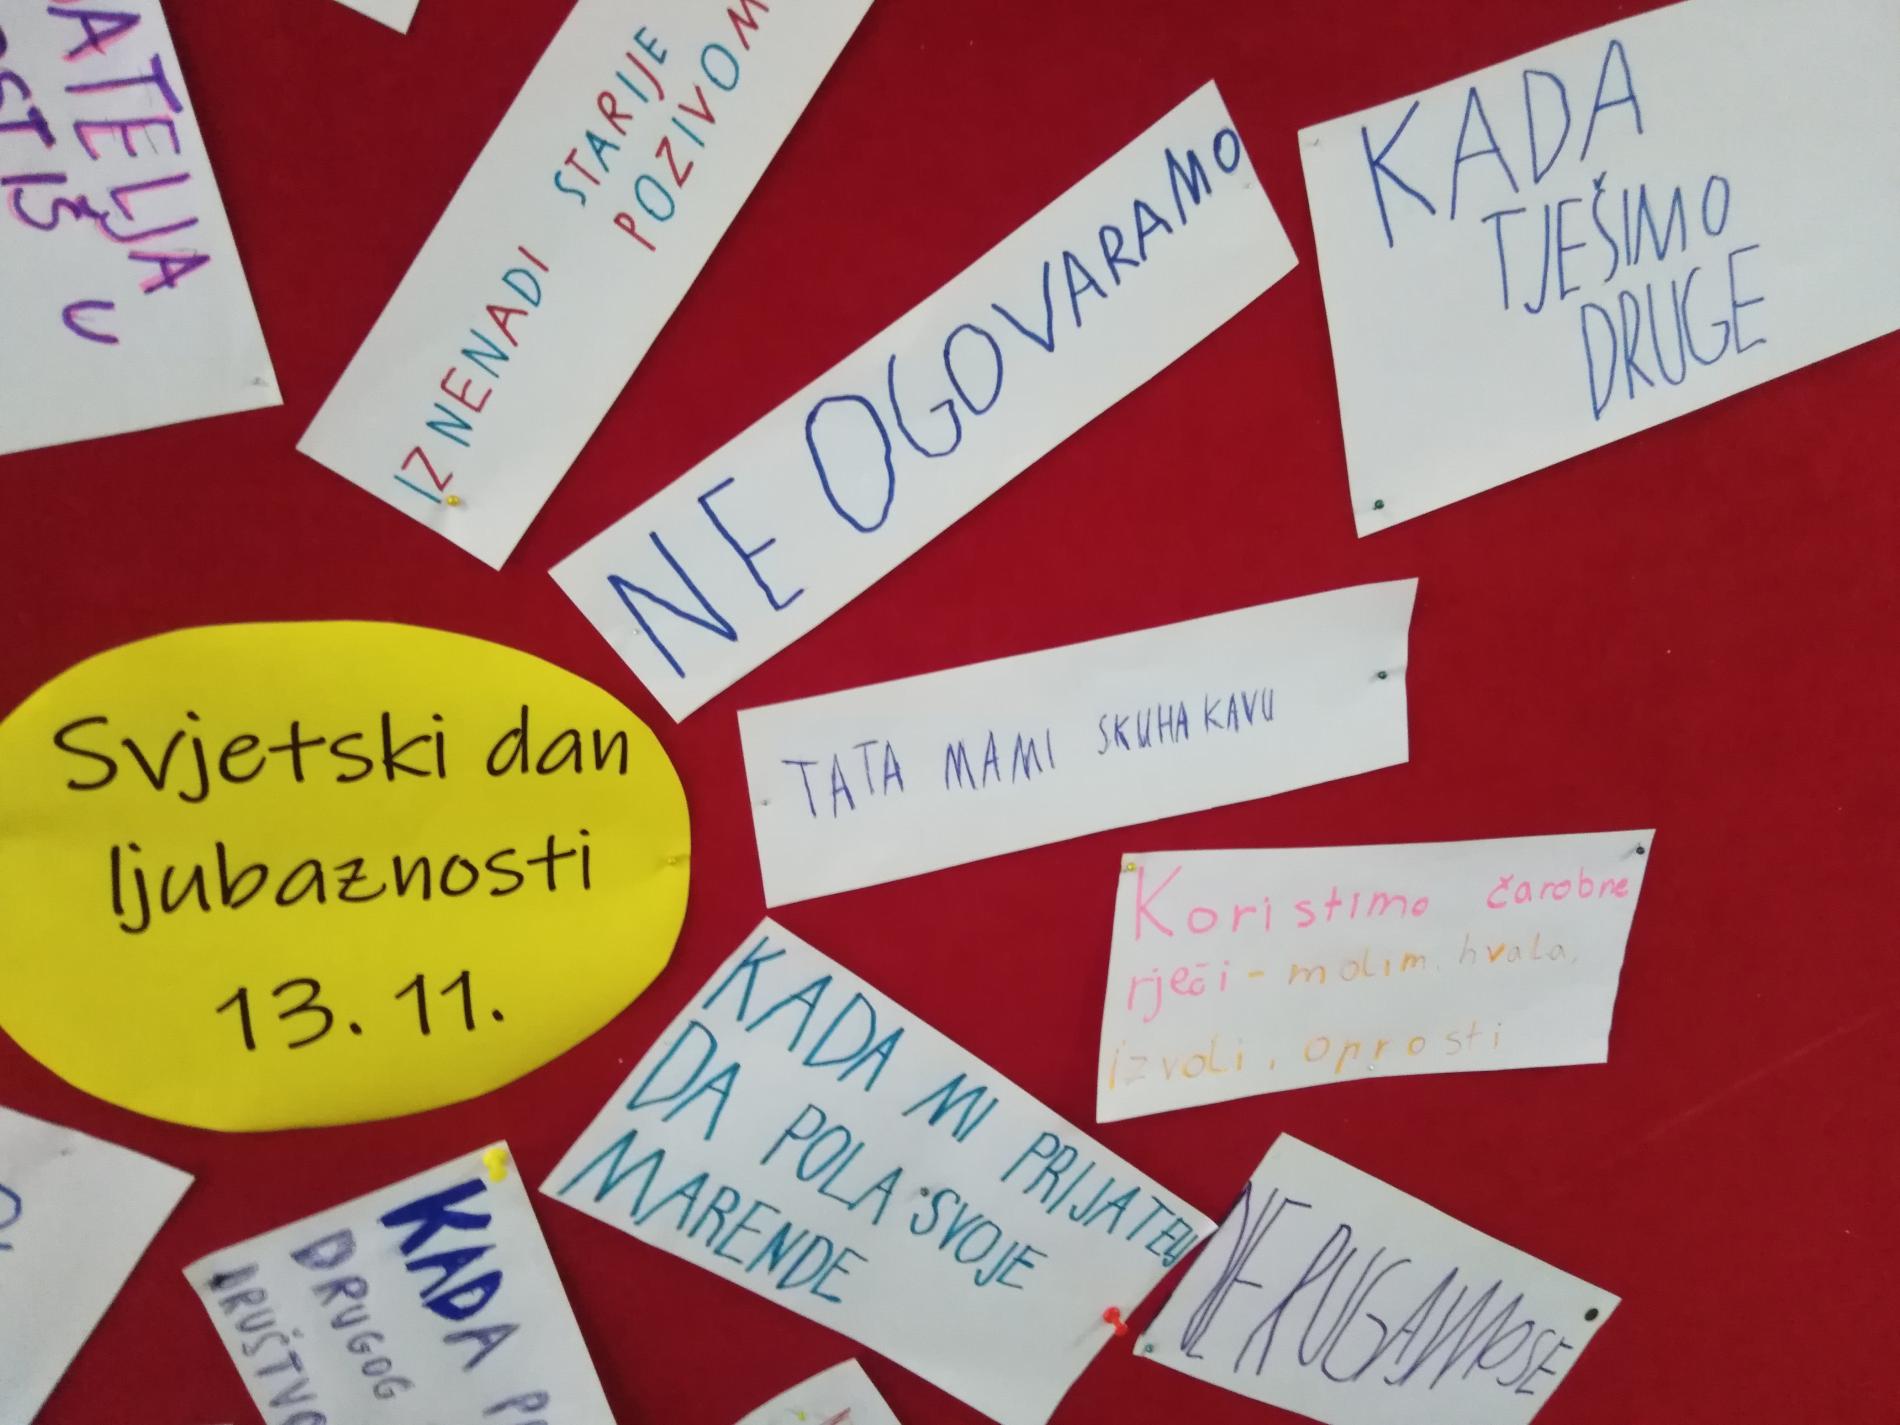 IZNENADI STARIJE
POZIVOM
NE OGOVARAMO
KADA
TJEŠIMO
DRUGE
Svjetski dan
ljubaznosti
13. 11.
TATA MAMI SKUHA KAVU
Koristimo čarobne
rječi - molim, hvala,
izvoli, oprosti
KADA MI PRIJATELJ
DA POLA SVOJE
MARENDE
NE RUGAMO SE
KADA
DRUGOG